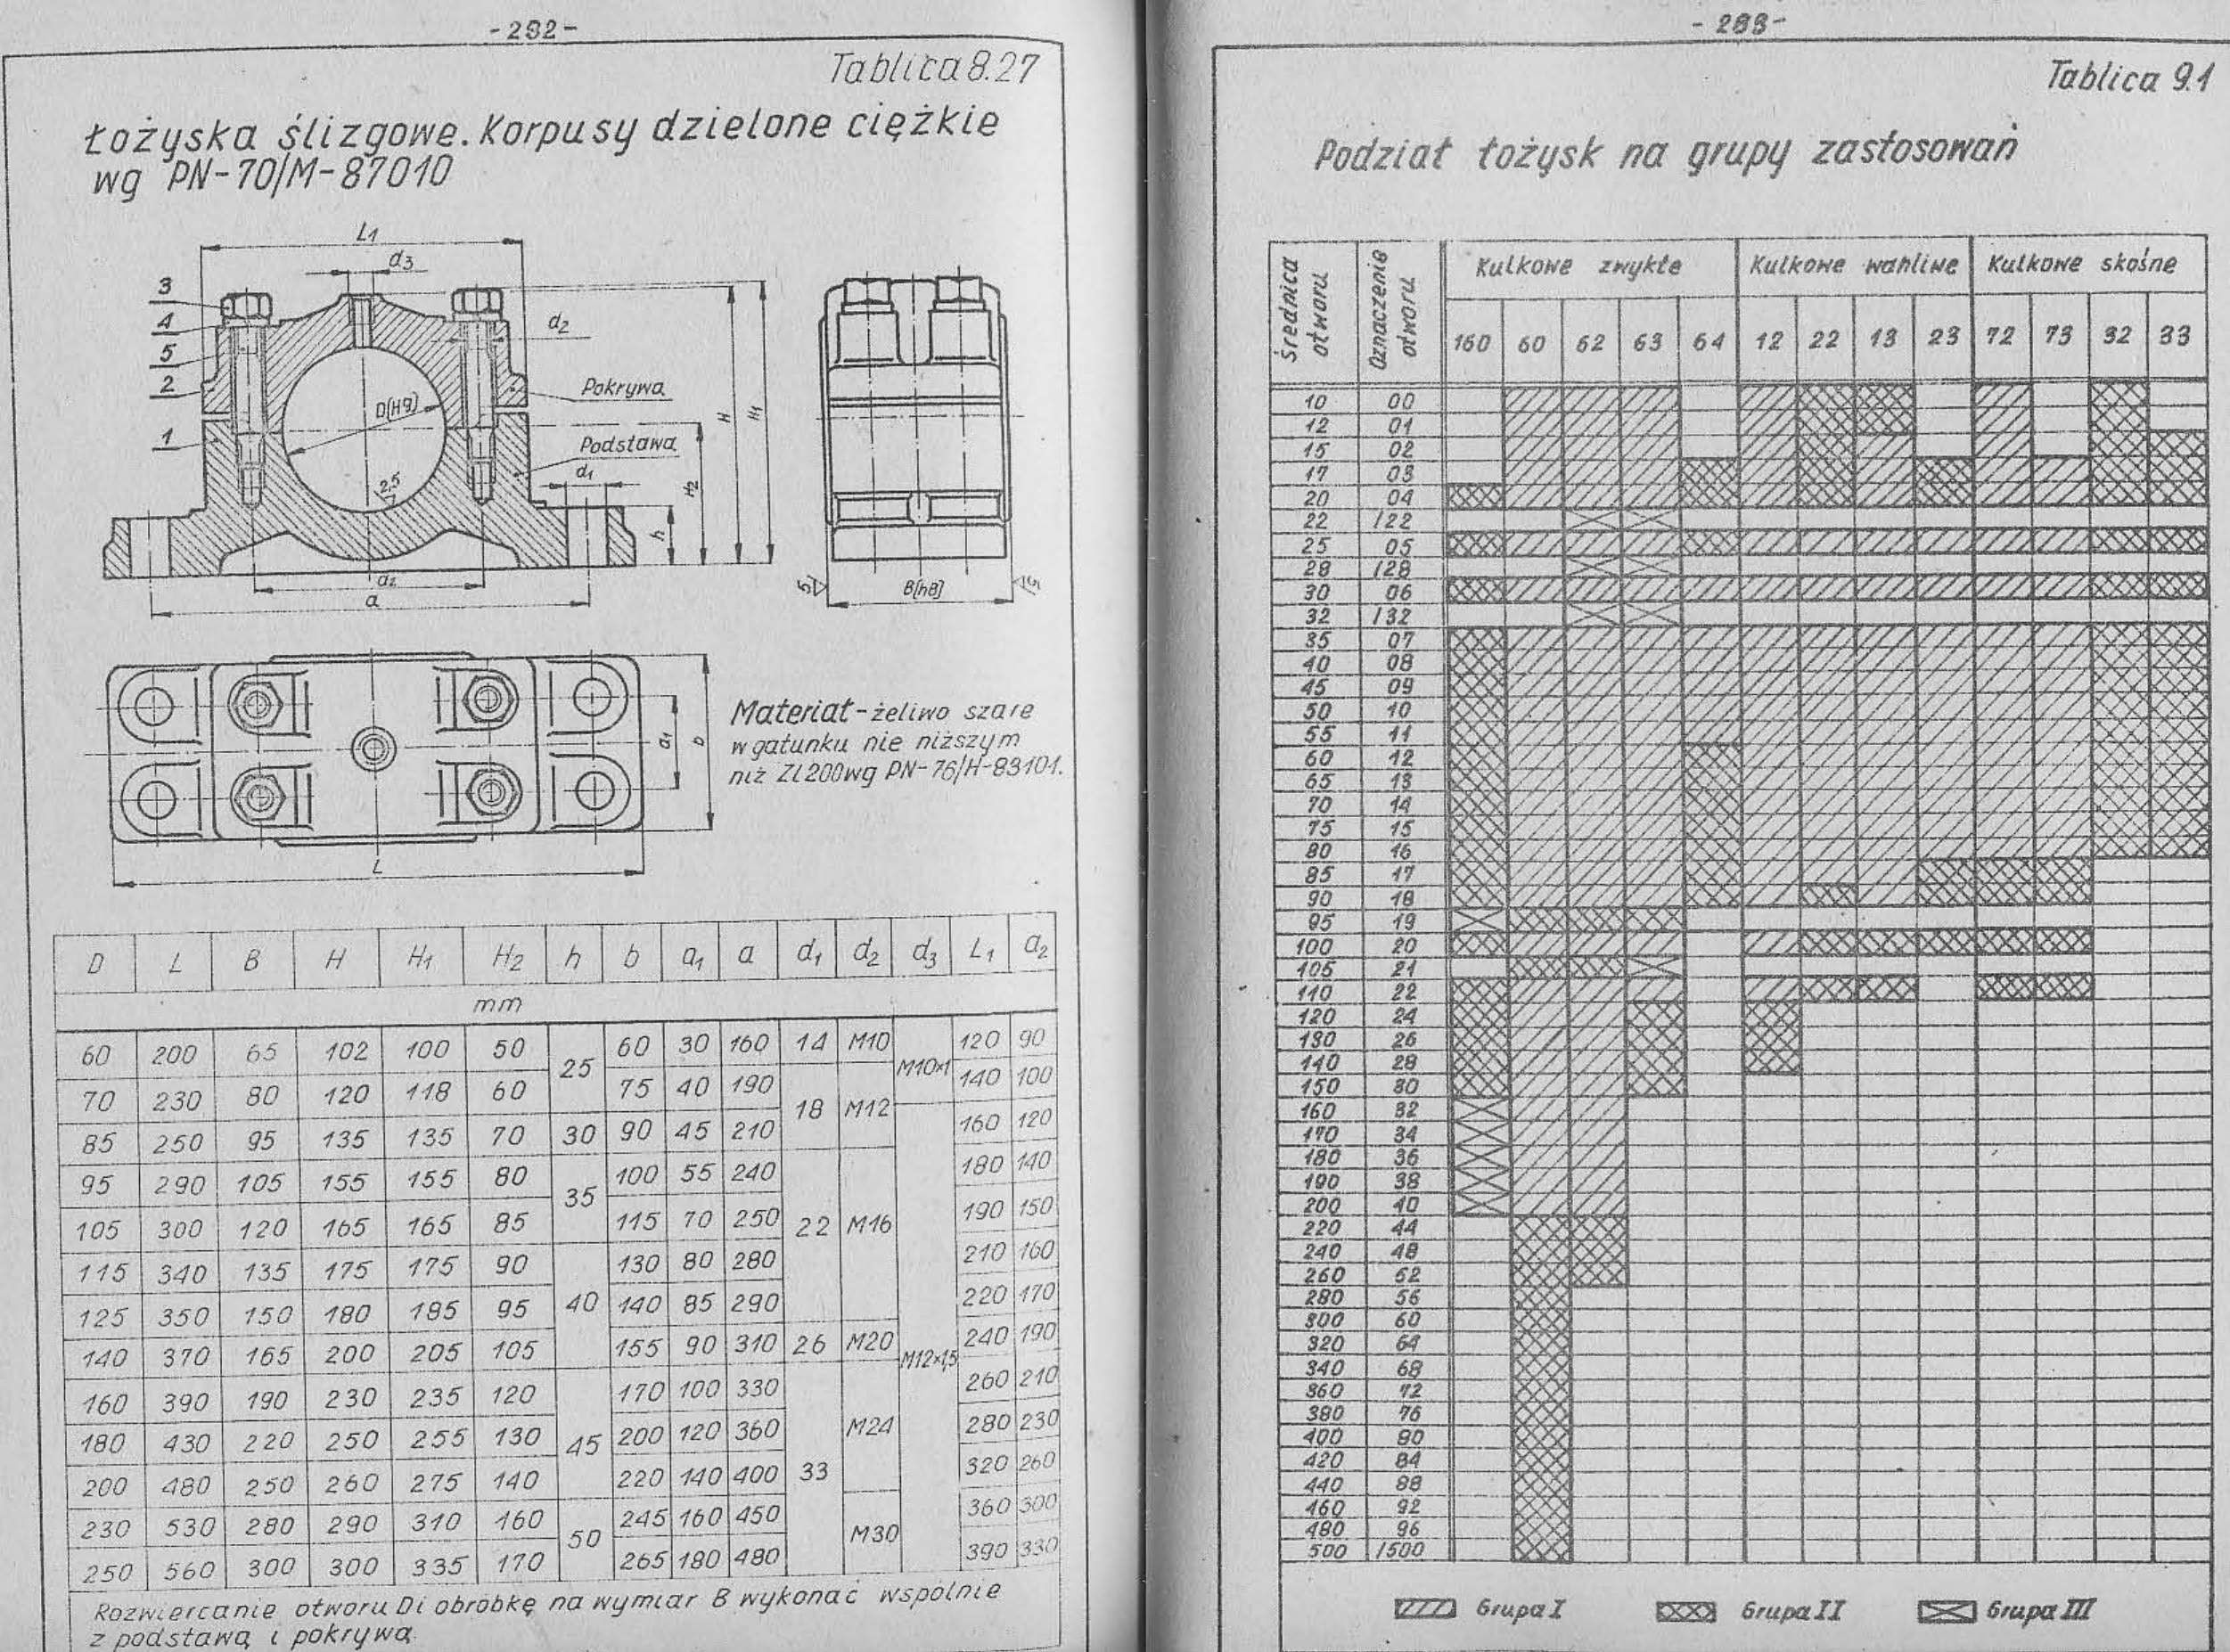 -292-
Tablica 8.27
Łożyska ślizgowe. Korpusy dzielone ciężkie
wg PN-70/M-87010
L1
d3
3
4
5
2
1
d2
Pokrywa
D(H9)
Podstawa
d1
2,5
h
H2
H
H1
a2
a
5
B(h8)
5
a1
b
L
Materiał - żeliwo szare
w gatunku nie niższym
niż Zl 200 wg PN-76/H-83101.
D L B H H1 H2 h b a1 a d1 d2 d3 L1 a2
mm
60 200 65 102 100 50 25 60 30 160 14 M10 M10×1 120 90
70 230 80 120 118 60 75 40 190 18 M12 140 100
85 250 95 135 135 70 30 90 45 210 M12×1,5 160 120
95 290 105 155 155 80 35 100 55 240 22 M16 180 140
105 300 120 165 165 85 115 70 250 190 150
115 340 135 175 175 90 40 130 80 280 210 160
125 350 150 180 185 95 140 85 290 220 170
140 370 165 200 205 105 155 90 310 26 M20 240 190
160 390 190 230 235 120 45 170 100 330 33 M24 260 210
180 430 220 250 255 130 200 120 360 280 230
200 480 250 260 275 140 220 140 400 320 260
230 530 280 290 310 160 50 245 160 450 M30 360 300
250 560 300 300 335 170 265 180 480 390 330
Rozwiercanie otworu D i obróbkę na wymiar B wykonać wspólnie
z podstawą i pokrywą
-293-
Tablica 9.1
Podział łożysk na grupy zastosowań
Średnica otworu
Oznaczenie otworu
Kulkowe zwykłe
Kulkowe wahliwe
Kulkowe skośne
160 60 62 63 64 12 22 13 23 72 73 32 33
10 00
12 01
15 02
17 03
20 04
22 /22
25 05
28 /28
30 06
32 /32
35 07
40 08
45 09
50 10
55 11
60 12
65 13
70 14
75 15
80 16
85 17
90 18
95 19
100 20
105 21
110 22
120 24
130 26
140 28
150 30
160 32
170 34
180 36
190 38
200 40
220 44
240 48
260 52
280 56
300 60
320 64
340 68
360 72
380 76
400 80
420 84
440 88
460 92
480 96
500 /500
Grupa I
Grupa II
Grupa III